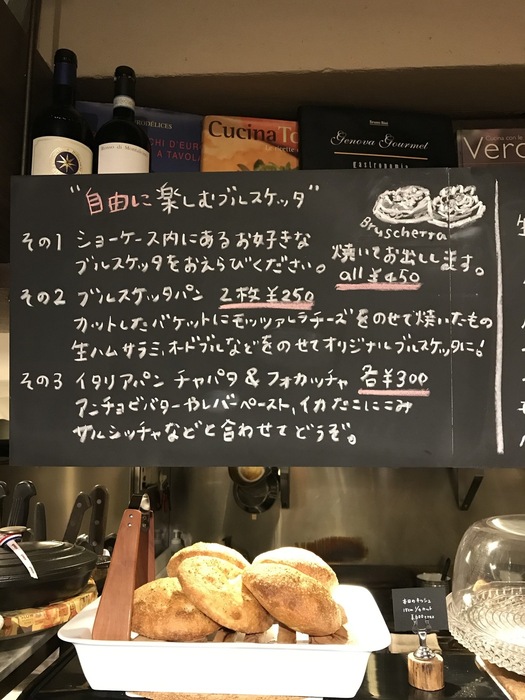 RODÉLICES
GHI D'EUR
A TAVOLA
Cucina To
Genova Gourmet
gastronomia
Vero
"自由に楽しむブルスケッタ"
Bruschetta
その1 ショーケース内にあるお好きな
ブルスケッタをおえらびください。
焼いてお出しします。
all ¥450
その2 ブルスケッタパン 2枚¥250
カットしたバケットにモッツァレラチーズをのせて焼いたもの
生ハムサラミ、オードブルなどをのせてオリジナルブルスケッタに!
その3 イタリアパン チャパタ & フォカッチャ 各¥300
アンチョビバターやレバーペースト、イカたこにこみ
サルシッチャなどと合わせてどうぞ。
生